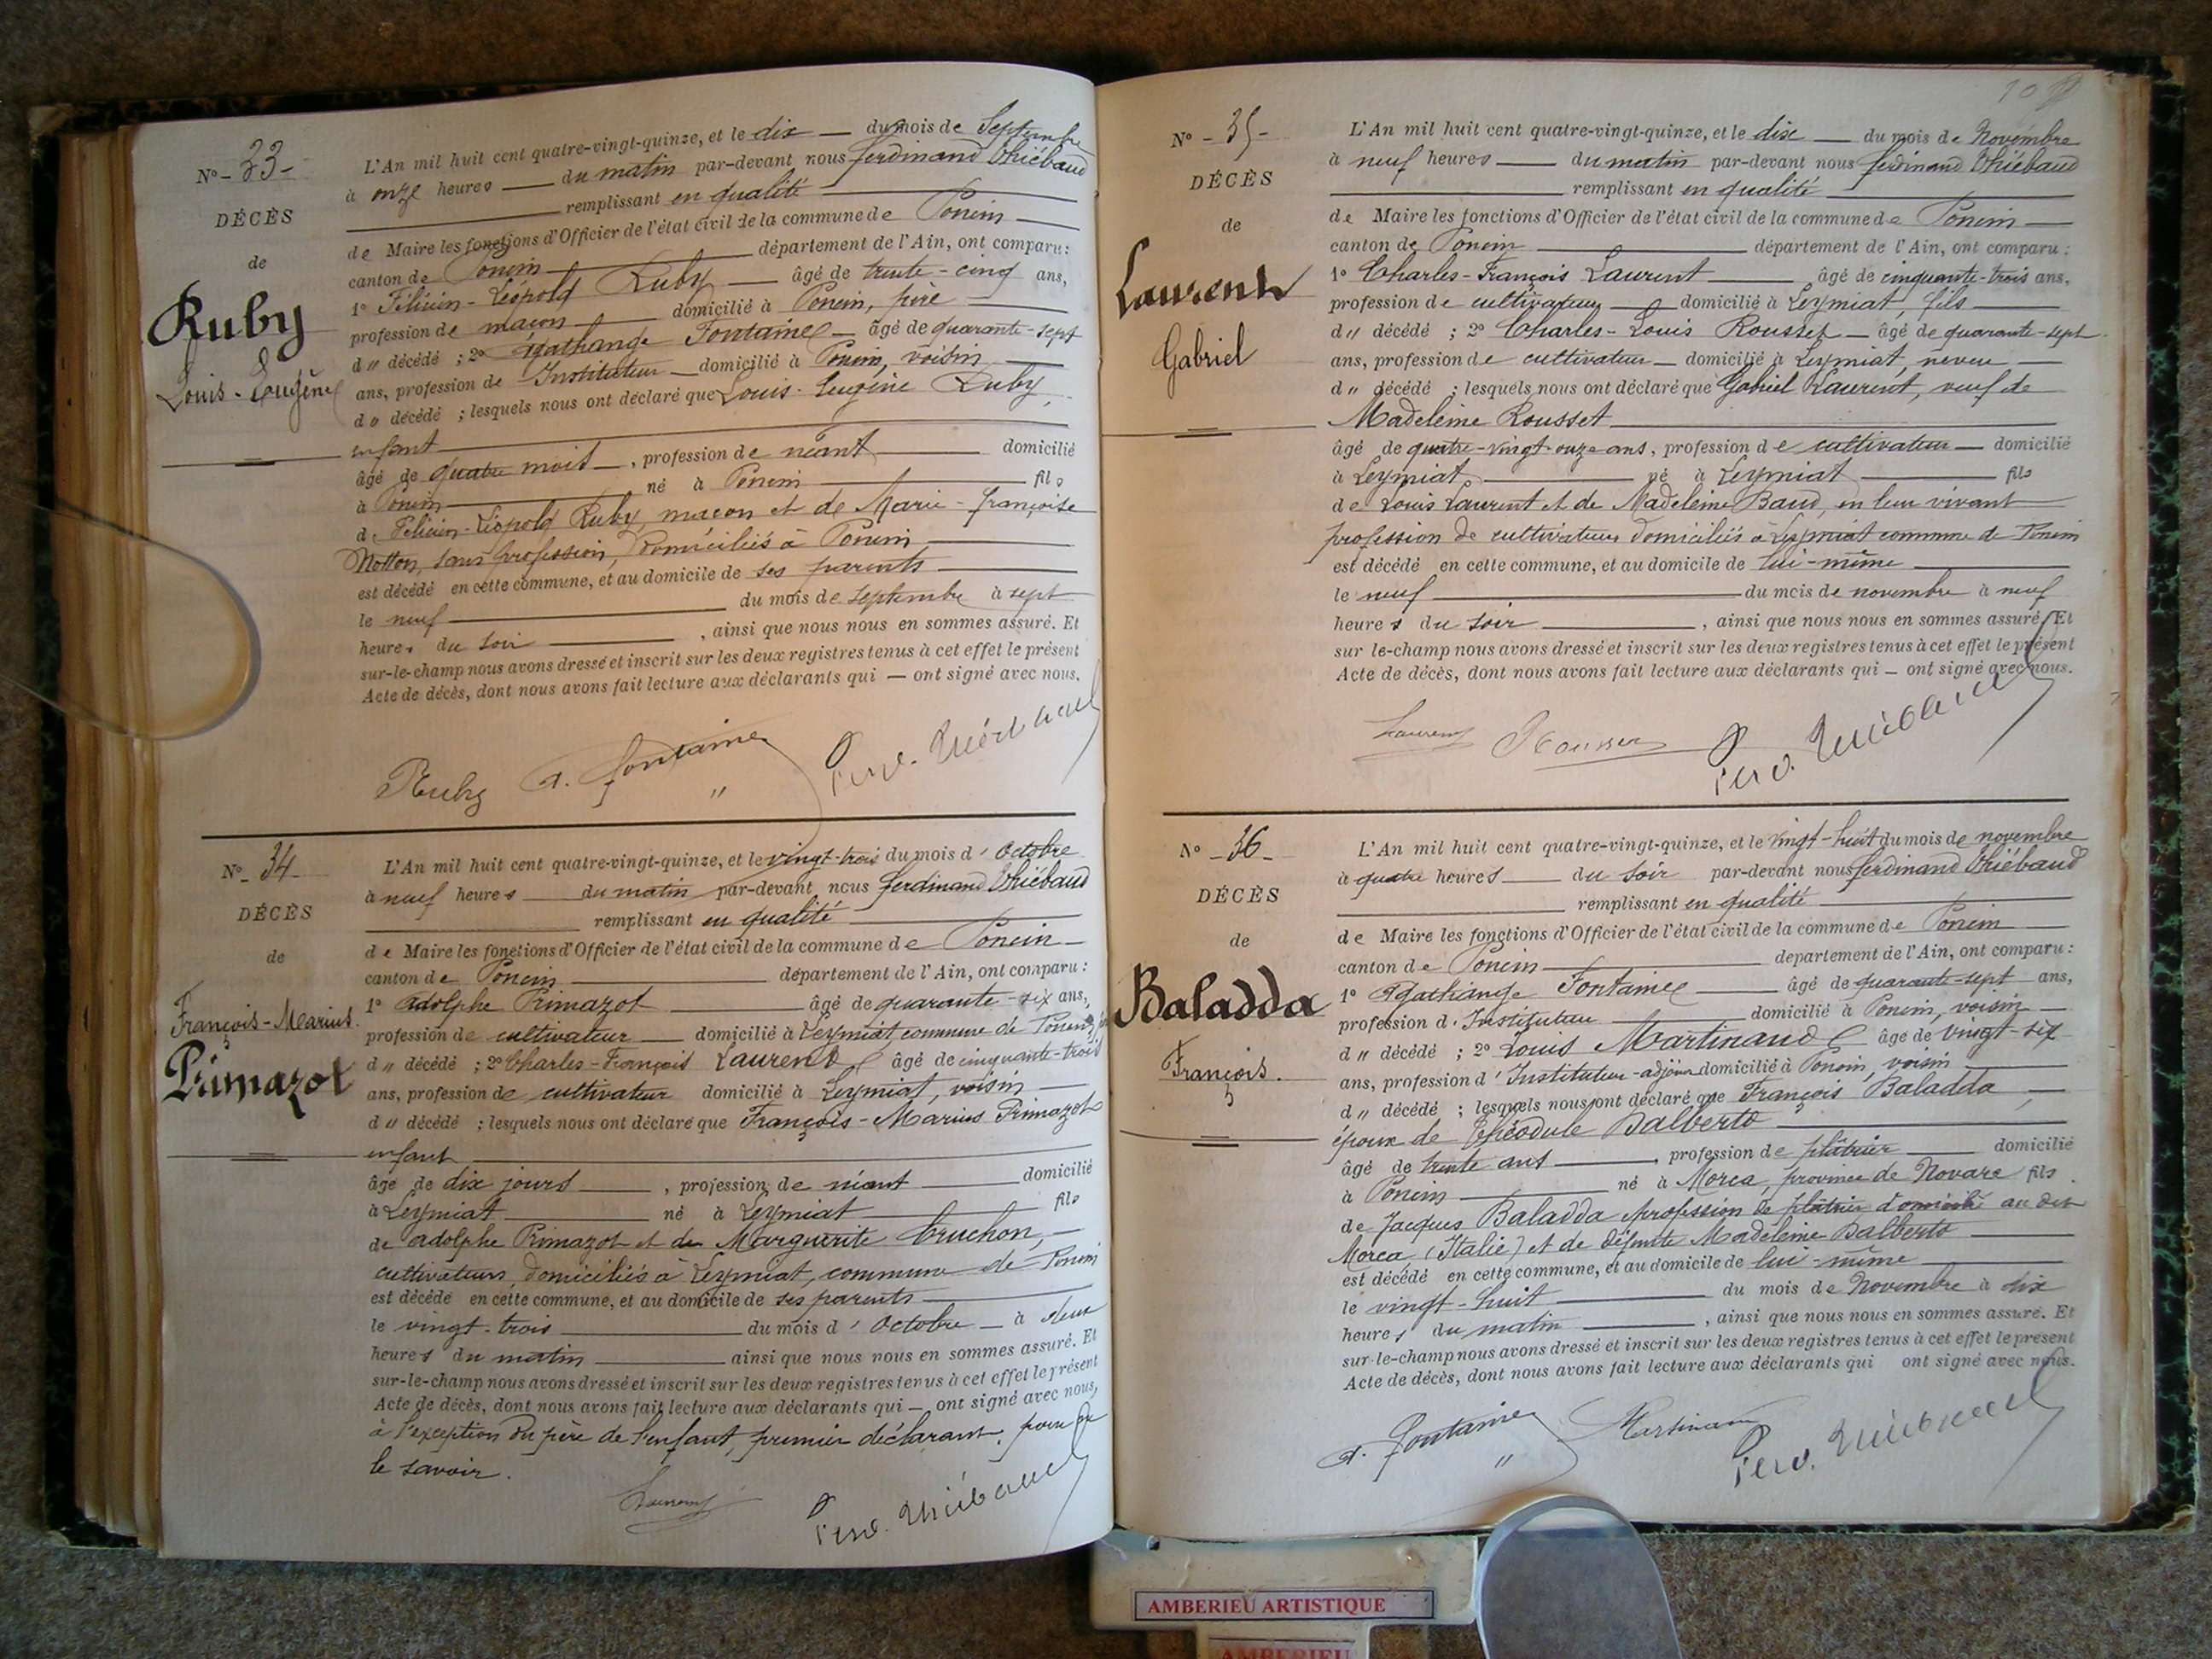 N° - 33 -
DÉCÈS
de
Ruby
Louis-Eugène
L'An mil huit cent quatre-vingt-quinze, et le dix — du mois de Septembre
à onze heures — du matin par-devant nous ferdinand Thiébaud
remplissant en qualité
de Maire les fonctions d'Officier de l'état civil de la commune de Poncin
canton de Poncin département de l'Ain, ont comparu :
1° Félicien-Léopold Ruby — âgé de trente-cinq ans,
profession de maçon domicilié à Poncin, père
d u décédé ; 2° Agathange Fontaine — âgé de quarante-sept
ans, profession de Instituteur — domicilié à Poncin, voisin
d u décédé ; lesquels nous ont déclaré que Louis-Eugène Ruby,
enfant
âgé de quatre mois —, profession de néant domicilié
à Poncin né à Poncin fils
de Félicien-Léopold Ruby, maçon et de Marie-françoise
Notton, sans profession, domiciliés à Poncin
est décédé en cette commune, et au domicile de ses parents
le neuf du mois de septembre à sept
heures du soir , ainsi que nous nous en sommes assuré. Et
sur-le-champ nous avons dressé et inscrit sur les deux registres tenus à cet effet le présent
Acte de décès, dont nous avons fait lecture aux déclarants qui — ont signé avec nous.
Ruby A. fontaine Ferd. Thiébaud
N° - 34 -
DÉCÈS
de
François-Marius
Primazot
L'An mil huit cent quatre-vingt-quinze, et le vingt-trois du mois d' Octobre
à neuf heures — du matin par-devant nous ferdinand Thiébaud
remplissant en qualité
de Maire les fonctions d'Officier de l'état civil de la commune de Poncin
canton de Poncin département de l'Ain, ont comparu :
1° Adolphe Primazot âgé de quarante-six ans,
profession de cultivateur — domicilié à Leymiat commune de Poncin,
d u décédé ; 2° Charles-François Laurent âgé de cinquante-trois
ans, profession de cultivateur domicilié à Leymiat, voisin
d u décédé ; lesquels nous ont déclaré que François-Marius Primazot
enfant
âgé de dix jours —, profession de néant domicilié
à Leymiat né à Leymiat fils
de adolphe Primazot et de Marguerite Cruchon,
cultivateurs, domiciliés à Leymiat, commune de Poncin
est décédé en cette commune, et au domicile de ses parents
le vingt-trois du mois d' Octobre — à deux
heures du matin ainsi que nous nous en sommes assuré. Et
sur-le-champ nous avons dressé et inscrit sur les deux registres tenus à cet effet le présent
Acte de décès, dont nous avons fait lecture aux déclarants qui — ont signé avec nous,
à l'exception du père de l'enfant, premier déclarant, pour ne
le savoir.
Laurent Ferd. Thiébaud
N° - 35 -
DÉCÈS
de
Laurent
Gabriel
L'An mil huit cent quatre-vingt-quinze, et le dix — du mois de Novembre
à neuf heures — du matin par-devant nous ferdinand Thiébaud
remplissant en qualité
de Maire les fonctions d'Officier de l'état civil de la commune de Poncin
canton de Poncin département de l'Ain, ont comparu :
1° Charles-François Laurent âgé de cinquante-trois ans,
profession de cultivateur — domicilié à Leymiat, fils
d u décédé ; 2° Charles-Louis Rousset — âgé de quarante-sept
ans, profession de cultivateur — domicilié à Leymiat, neveu
d u décédé ; lesquels nous ont déclaré que Gabriel Laurent, veuf de
Madeleine Rousset
âgé de quatre-vingt-onze ans, profession de cultivateur — domicilié
à Leymiat né à Leymiat fils
de Louis Laurent et de Madeleine Baud, en leur vivant
profession de cultivateurs domiciliés à Leymiat commune de Poncin
est décédé en cette commune, et au domicile de lui-même
le neuf du mois de novembre à neuf
heures du soir , ainsi que nous nous en sommes assuré. Et
sur le-champ nous avons dressé et inscrit sur les deux registres tenus à cet effet le présent
Acte de décès, dont nous avons fait lecture aux déclarants qui — ont signé avec nous.
Laurent Rousset Ferd. Thiébaud
N° - 36 -
DÉCÈS
de
Baladda
François.
L'An mil huit cent quatre-vingt-quinze, et le vingt-huit du mois de novembre
à quatre heures — du soir par-devant nous ferdinand Thiébaud
remplissant en qualité
de Maire les fonctions d'Officier de l'état civil de la commune de Poncin
canton de Poncin département de l'Ain, ont comparu :
1° Agathange Fontaine âgé de quarante-sept ans,
profession d' Instituteur domicilié à Poncin, voisin
d u décédé ; 2° Louis Martinaud âgé de vingt-six
ans, profession d' Instituteur-adjoint domicilié à Poncin, voisin
d u décédé ; lesquels nous ont déclaré que François Baladda,
époux de Théodule Dalberto
âgé de trente ans , profession de plâtrier domicilié
à Poncin né à Morca, province de Novare fils
de Jacques Baladda profession de plâtrier domicilié au dit
Morca, (Italie) et de défunte Madeleine Dalberto
est décédé en cette commune, et au domicile de lui-même
le vingt-huit du mois de Novembre à dix
heures du matin , ainsi que nous nous en sommes assuré. Et
sur-le-champ nous avons dressé et inscrit sur les deux registres tenus à cet effet le présent
Acte de décès, dont nous avons fait lecture aux déclarants qui ont signé avec nous.
A. fontaine Martinaud Ferd. Thiébaud
AMBERIEU ARTISTIQUE
AMBERIEU